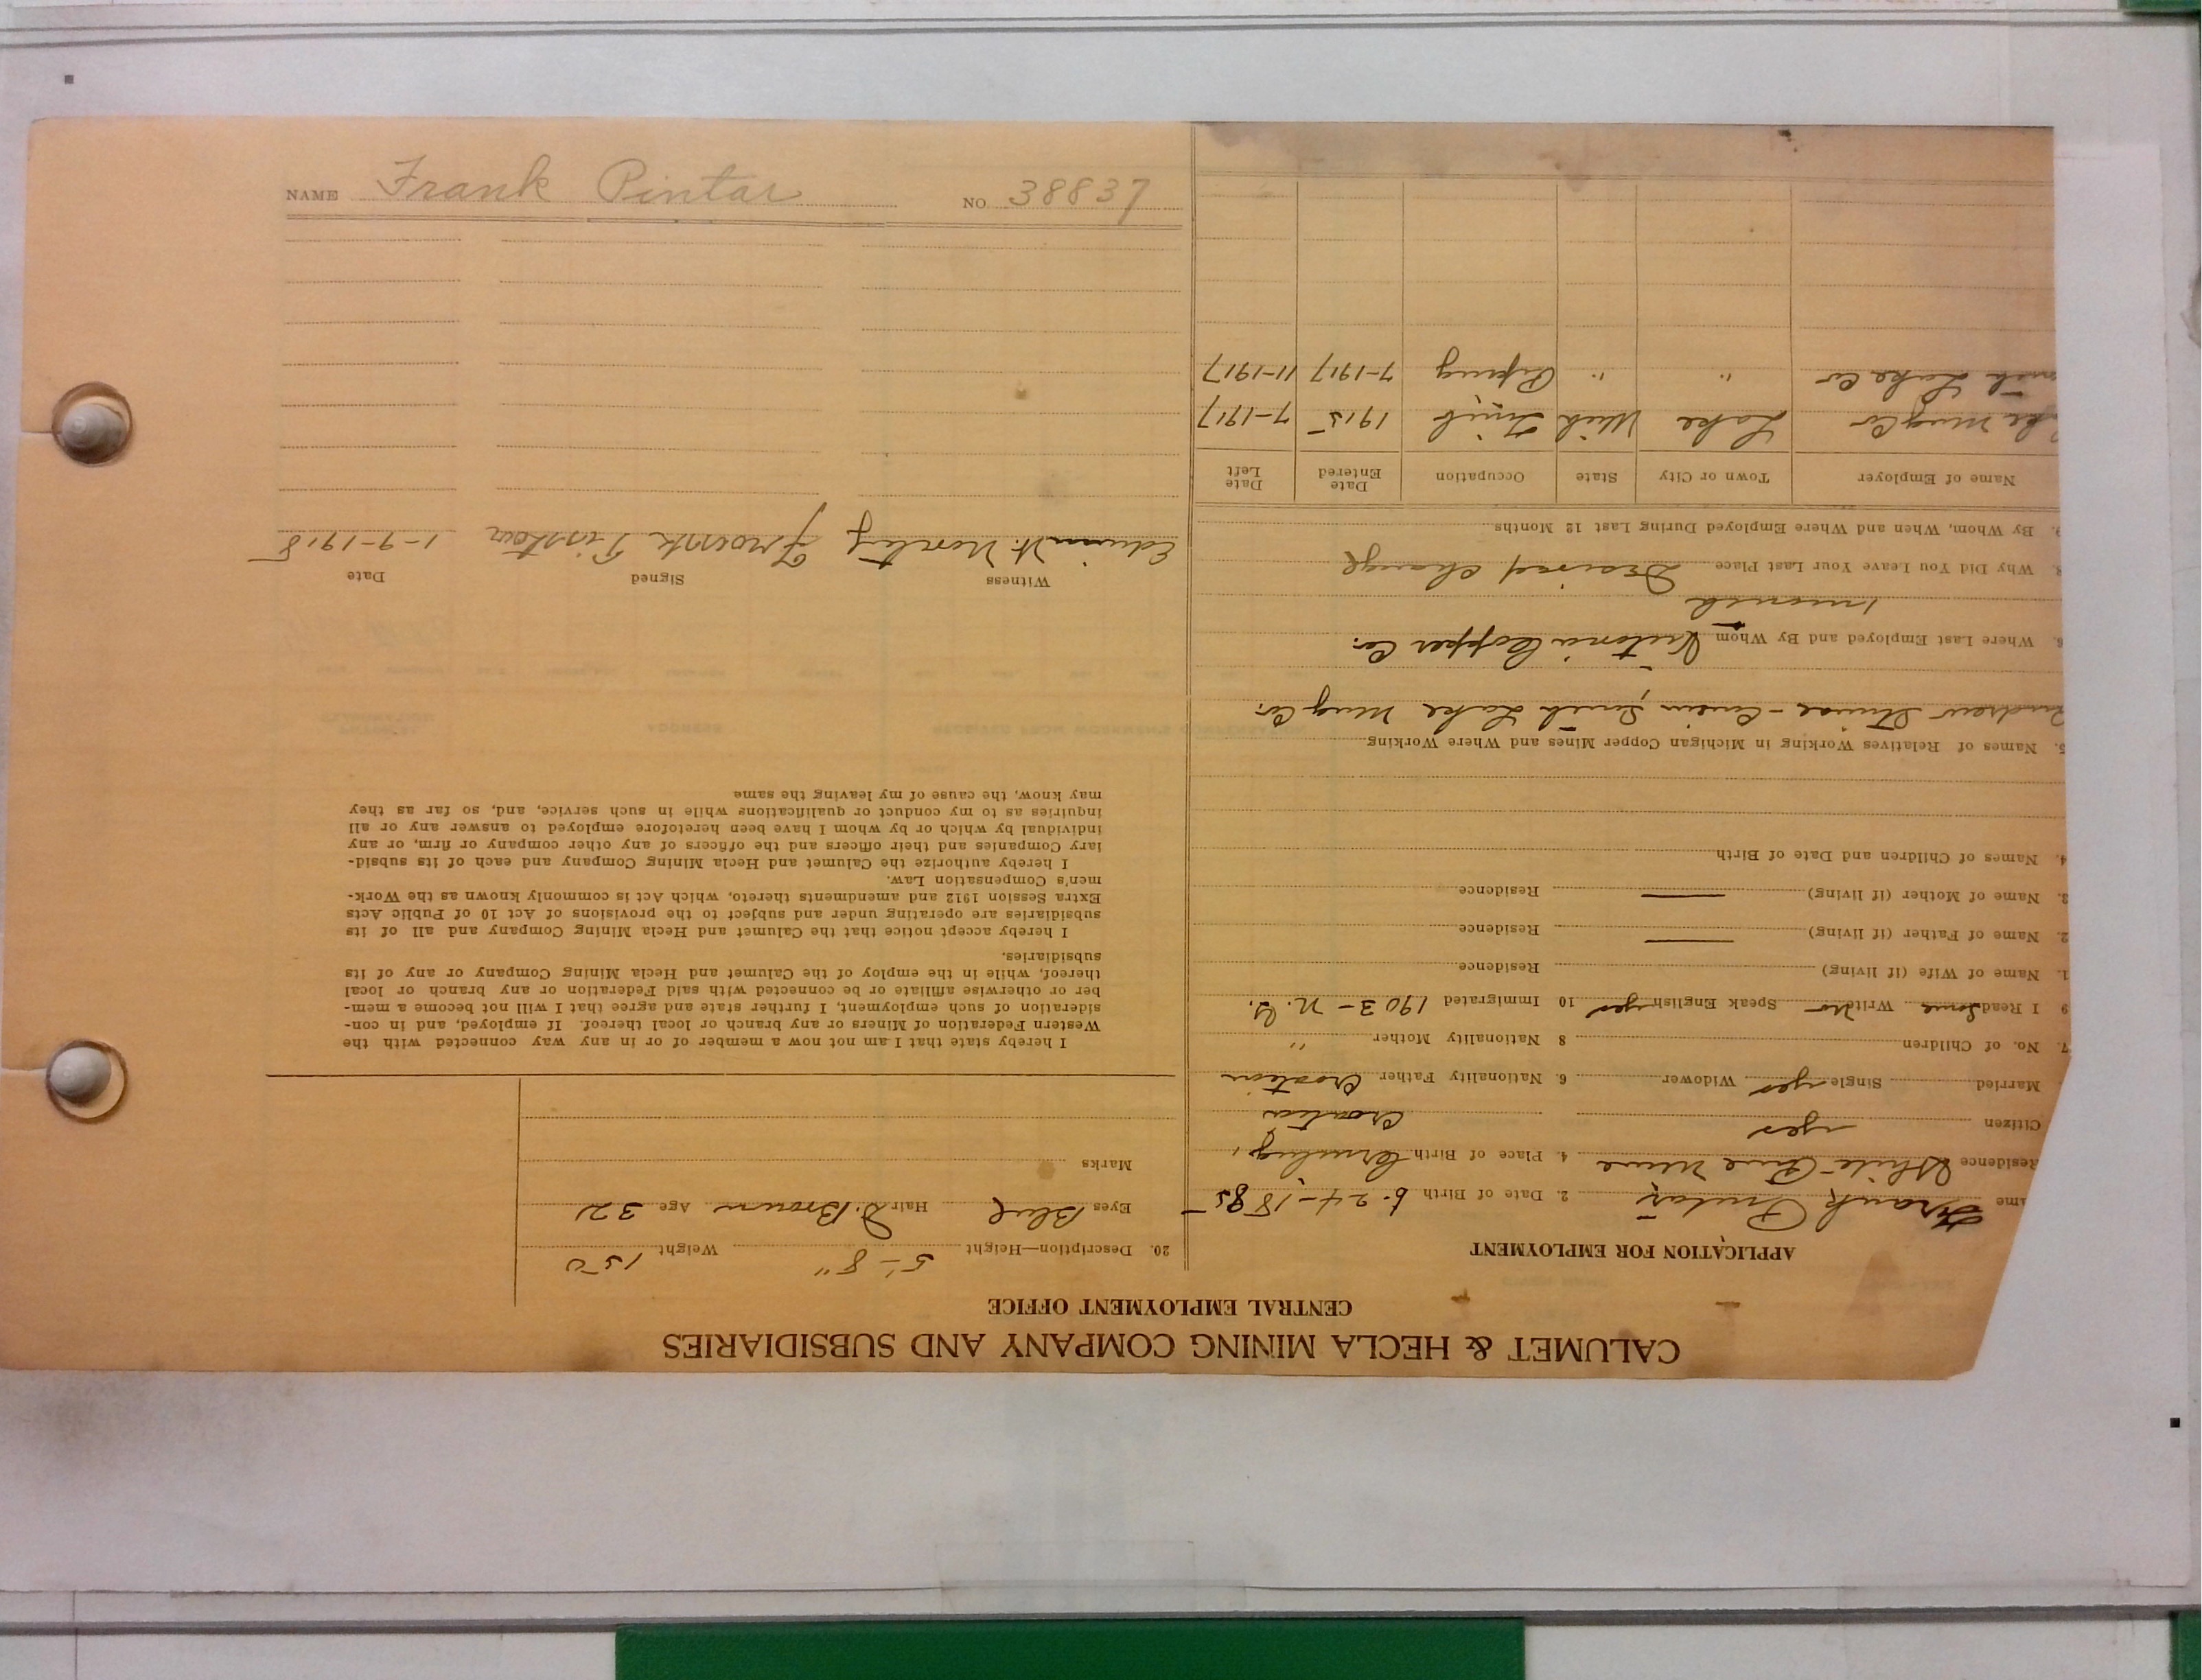 NAME Frank Pintar NO. 38837
CALUMET & HECLA MINING COMPANY AND SUBSIDIARIES
CENTRAL EMPLOYMENT OFFICE
APPLICATION FOR EMPLOYMENT
ame Frank Pintar 2. Date of Birth 6-24-1885
Residence White Pine Mine 4. Place of Birth
Citizen yes Croatia
Married Single yes Widower 6. Nationality Father Croatian
7. No. of Children 8 Nationality Mother "
9 I Read Some Write No Speak English yes 10 Immigrated 1903 - N.Y.
1. Name of Wife (if living) Residence
2. Name of Father (if living) — Residence
3. Name of Mother (if living) — Residence
4. Names of Children and Date of Birth
5. Names of Relatives Working in Michigan Copper Mines and Where Working
Andrew - Cousin, South Lake Mng Co.
6. Where Last Employed and By Whom Victoria Copper Co.
1 month
8. Why Did You Leave Your Last Place Desired change
9. By Whom, When and Where Employed During Last 12 Months
Name of Employer Town or City State Occupation Date Entered Date Left
ke Mng Co Lake Mich 1915 7-1917
outh Lake Co " " 7-1917 11-1917
20. Description—Height 5'-8" Weight 150
Eyes Blue Hair D. Brown Age 32
Marks
I hereby state that I am not now a member of or in any way connected with the
Western Federation of Miners or any branch or local thereof. If employed, and in con-
sideration of such employment, I further state and agree that I will not become a mem-
ber or otherwise affiliate or be connected with said Federation or any branch or local
thereof, while in the employ of the Calumet and Hecla Mining Company or any of its
subsidiaries.
I hereby accept notice that the Calumet and Hecla Mining Company and all of its
subsidiaries are operating under and subject to the provisions of Act 10 of Public Acts
Extra Session 1912 and amendments thereto, which Act is commonly known as the Work-
men's Compensation Law.
I hereby authorize the Calumet and Hecla Mining Company and each of its subsid-
iary Companies and their officers and the officers of any other company or firm, or any
individual by which or by whom I have been heretofore employed to answer any or all
inquiries as to my conduct or qualifications while in such service, and, so far as they
may know, the cause of my leaving the same
Witness Signed Date
Edwin H. 1-9-1918